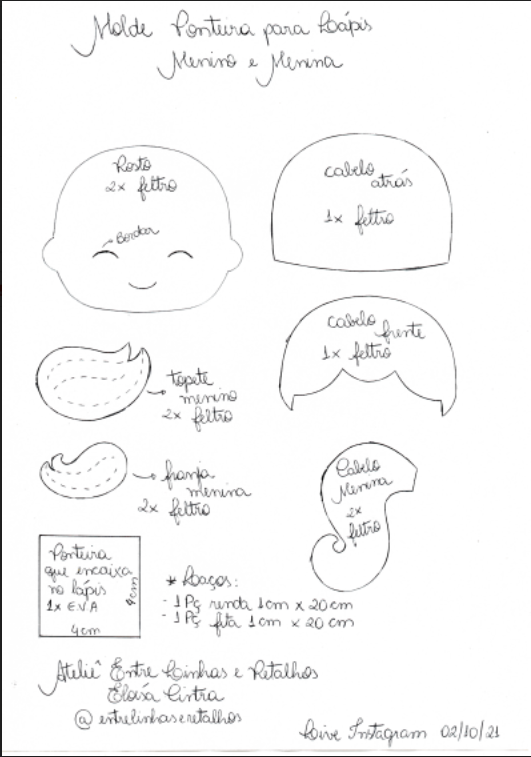 Molde Ponteira para Lápis
Menino e Menina
Rosto
2x feltro
Bordar
cabelo
atrás
1x feltro
cabelo
frente
1x feltro
topete
menino
2x feltro
franja
menina
2x feltro
Cabelo
Menina
2x
feltro
Ponteira
que encaixa
no lápis
1x E.V.A
4cm
4cm
* Laços:
- 1 Pç renda 1cm x 20cm
- 1 Pç fita 1cm x 20cm
Ateliê Entre Linhas e Retalhos
Eloísa Cintra
@entrelinhaseretalhos
Live Instagram 02/10/21